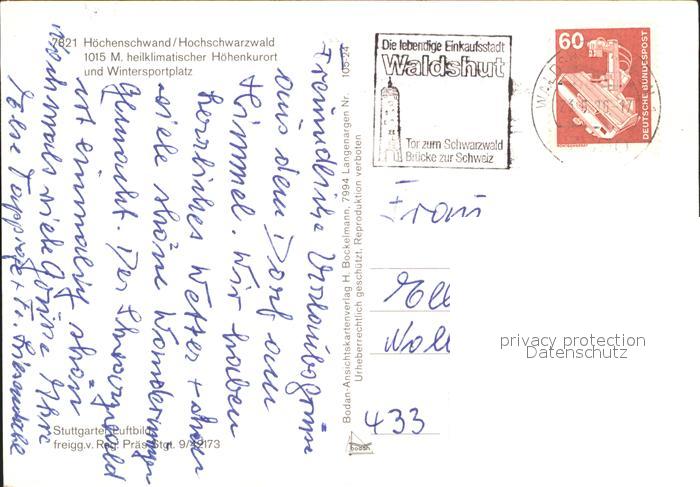 7821 Höchenschwand/Hochschwarzwald
1015 M. heilklimatischer Höhenkurort
und Wintersportplatz
Freundliche Urlaubsgrüße
aus dem Dorf am
Himmel. Wir haben
herrliches Wetter + schon
viele schöne Wanderungen
gemacht. Der Schwarzwald
ist einmalig schön
Nochmals viele Grüße Ihre
+ Fr.
Stuttgarter Luftbild
freigg.v. Reg. Präs. Stgt. 9/42173
Bodan-Ansichtskartenverlag H. Bockelmann, 7994 Langenargen Nr. 106-24
Urheberrechtlich geschützt, Reproduktion verboten
bodan
Die lebendige Einkaufsstadt
Waldshut
Tor zum Schwarzwald
Brücke zur Schweiz
60
DEUTSCHE BUNDESPOST
Frau
433
privacy protection
Datenschutz